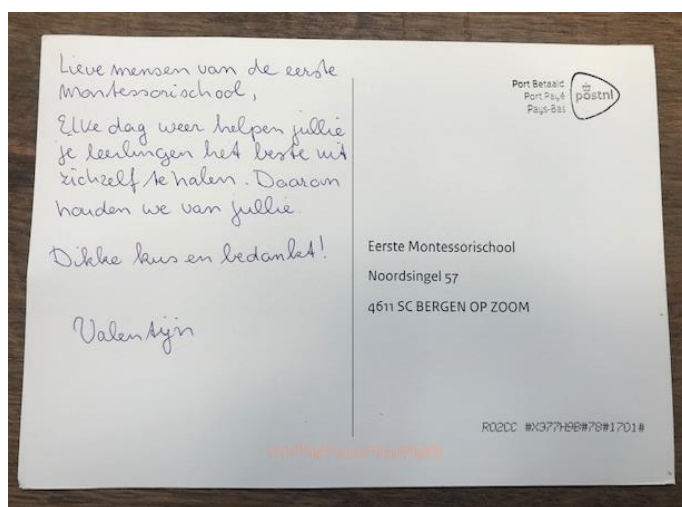 Lieve mensen van de eerste
Montessorischool,
Elke dag weer helpen jullie
je leerlingen het beste uit
zichzelf te halen. Daarom
houden we van jullie.
Dikke kus en bedankt!
Valentijn
Port Betaald
Port Payé
Pays-Bas
postnl
Eerste Montessorischool
Noordsingel 57
4611 SC BERGEN OP ZOOM
R02CC #X377H9B#78#1701#